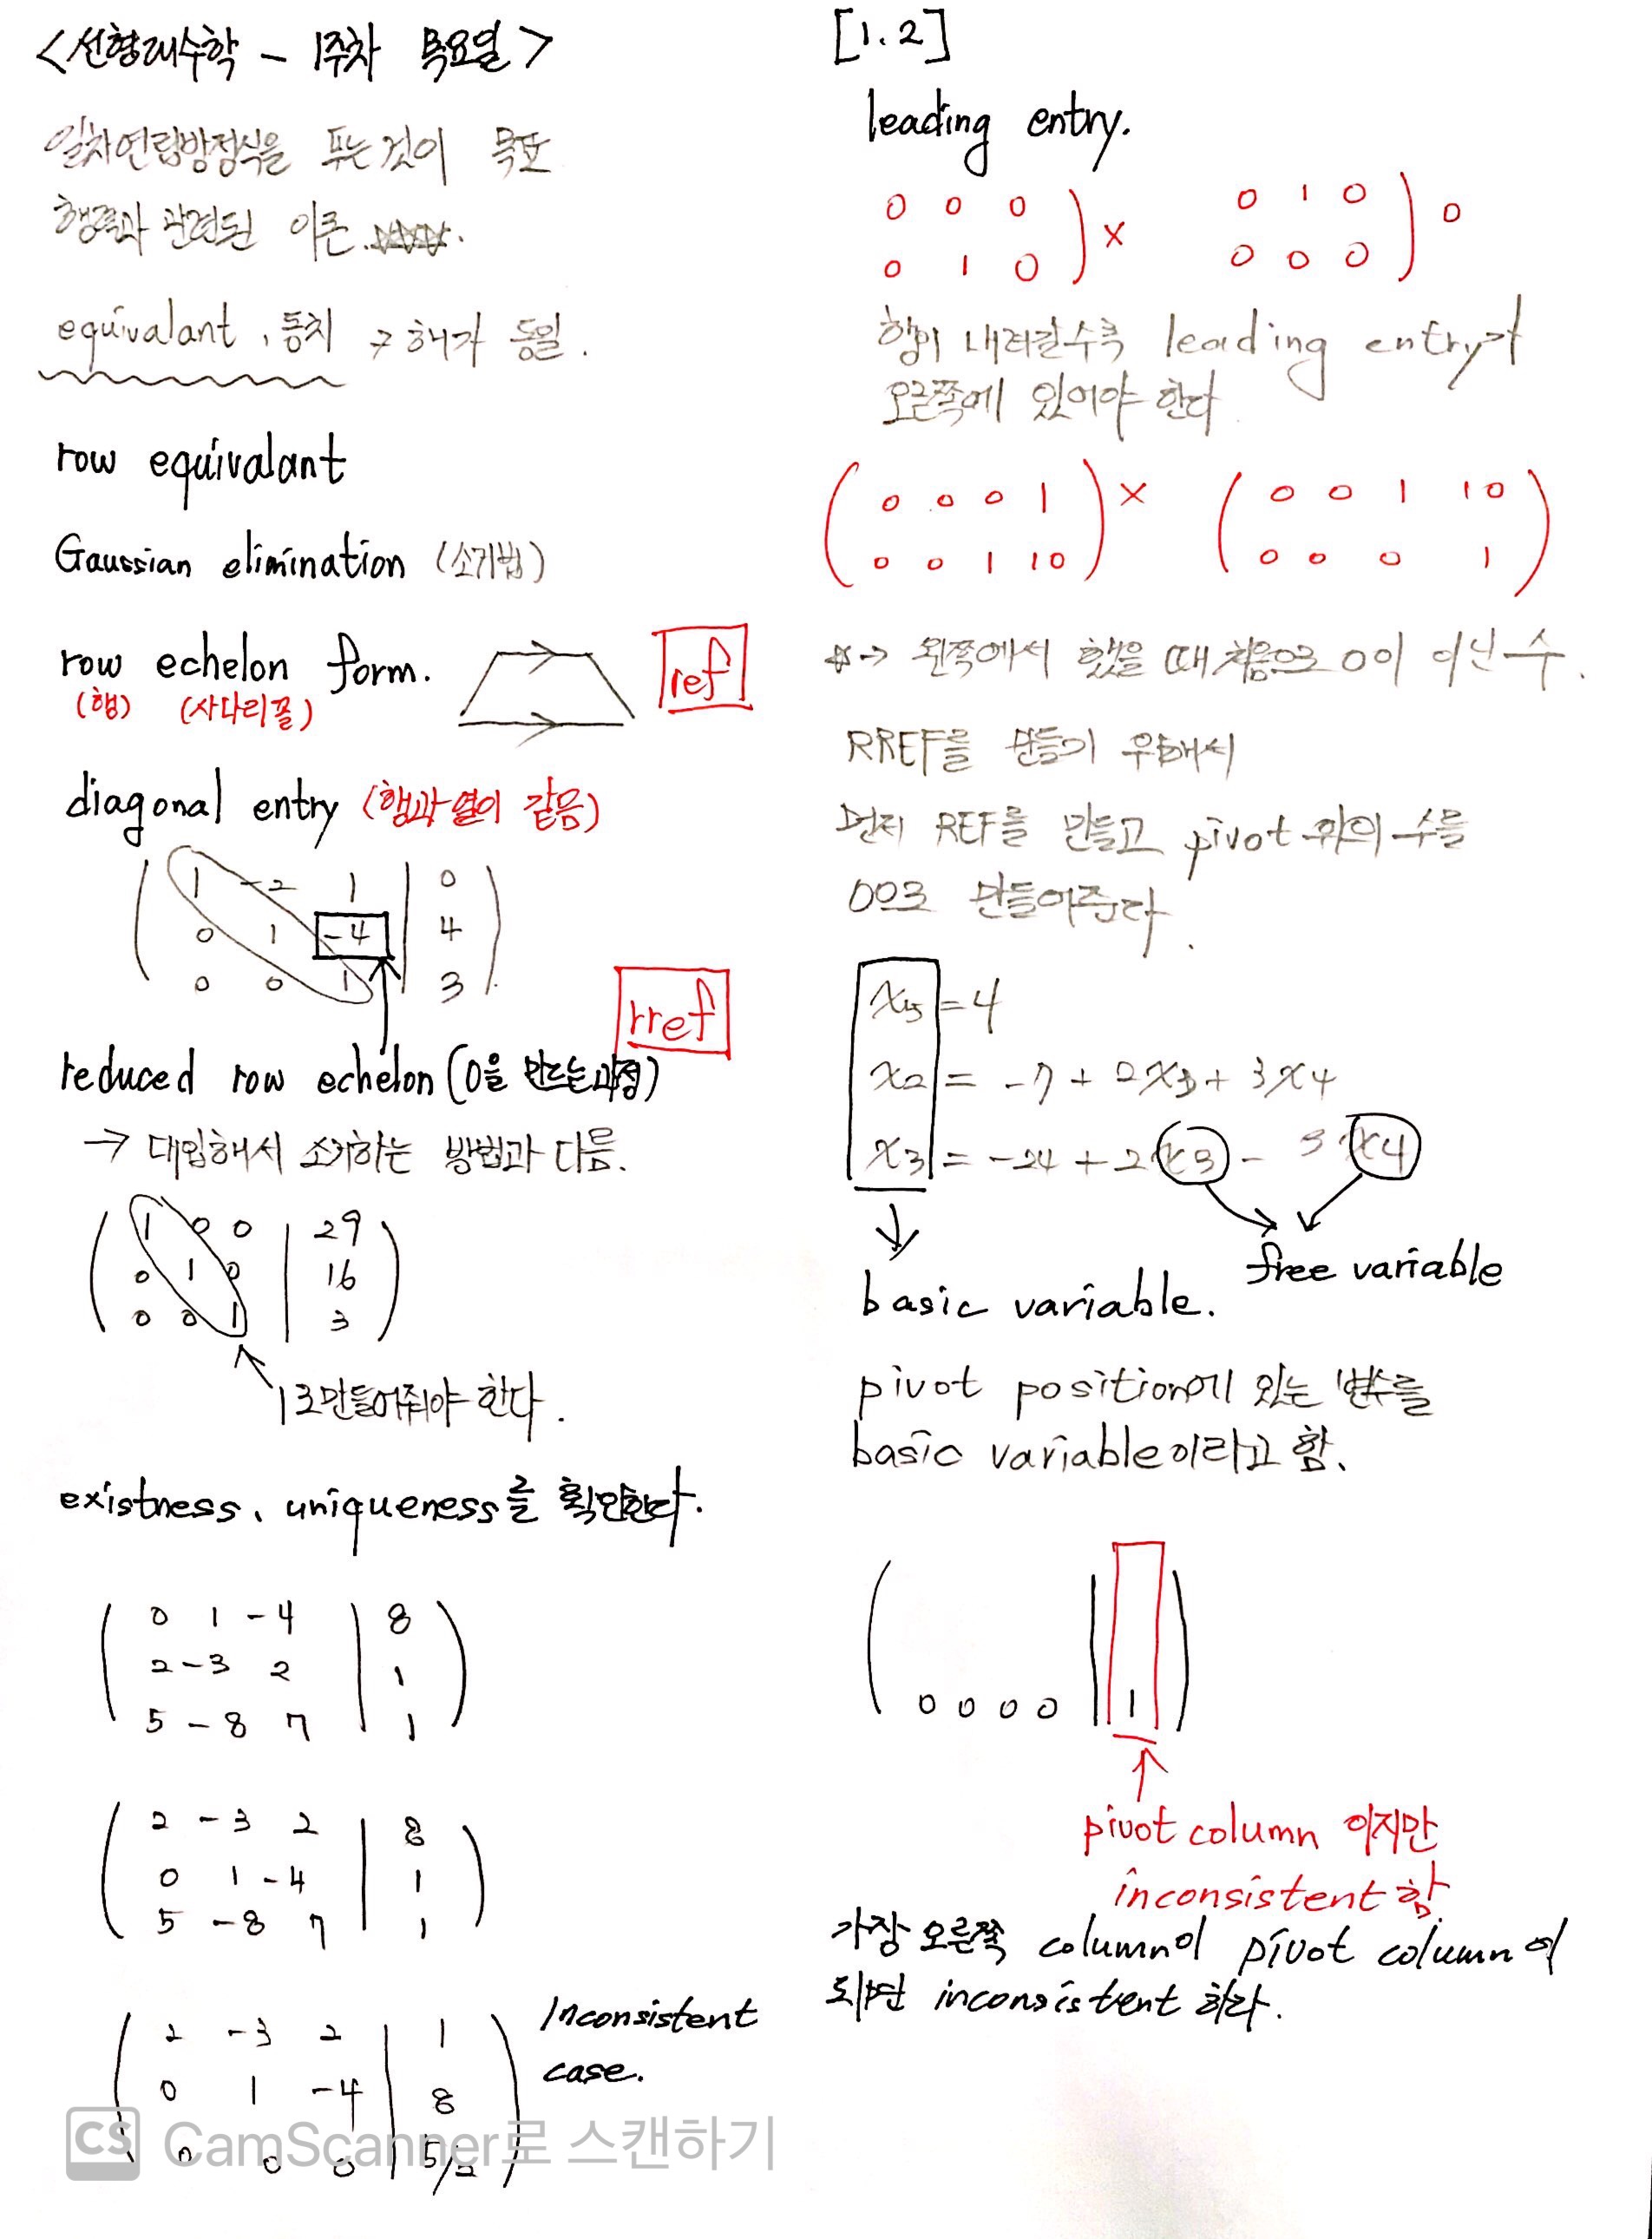 <선형대수학 - 1주차 목요일>
일차연립방정식을 푸는 것이 목표
행렬과 관련된 이론
equivalant, 동치 → 해가 동일.
row equivalant
Gaussian elimination (소거법)
row echelon form.
(행) (사다리꼴)
ref
diagonal entry (행과 열이 같음)
1 -2 1 | 0
0 1 -4 | 4
0 0 1 | 3
rref
reduced row echelon (0을 만드는 과정)
→ 대입해서 소거하는 방법과 다름.
1 0 0 | 29
0 1 0 | 16
0 0 1 | 3
1로 만들어줘야 한다.
existness, uniqueness를 확인한다.
0 1 -4 | 8
2 -3 2 | 1
5 -8 7 | 1
2 -3 2 | 8
0 1 -4 | 1
5 -8 7 | 1
2 -3 2 | 1
0 1 -4 | 8
0 0 0 | 5/2
Inconsistent
case.
[1.2]
leading entry.
0 0 0 ) × 0 1 0 ) 0
0 1 0 0 0 0
행이 내려갈수록 leading entry가
오른쪽에 있어야 한다
( 0 0 0 1 ) × ( 0 0 1 10 )
0 0 1 10 0 0 0 1
☆→ 왼쪽에서 했을 때 처음으로 0이 아닌 수.
RREF를 만들기 위해서
먼저 REF를 만들고 pivot 위의 수를
0으로 만들어준다.
x5 = 4
x2 = -7 + 2x3 + 3x4
x3 = -24 + 2x3 - 3x4
basic variable.
free variable
pivot position에 있는 변수를
basic variable이라고 함.
0 0 0 0 | 1
pivot column 이지만
inconsistent 함.
가장 오른쪽 column이 pivot column이
되면 inconsistent 하다.
CS CamScanner로 스캔하기